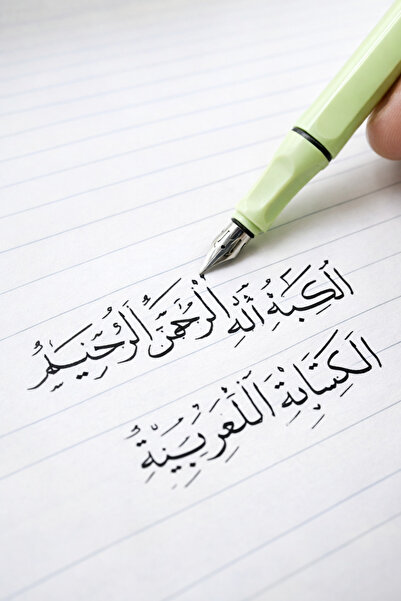 الكبة الله الرحمن الرحيم
الكتابة اللغربينة